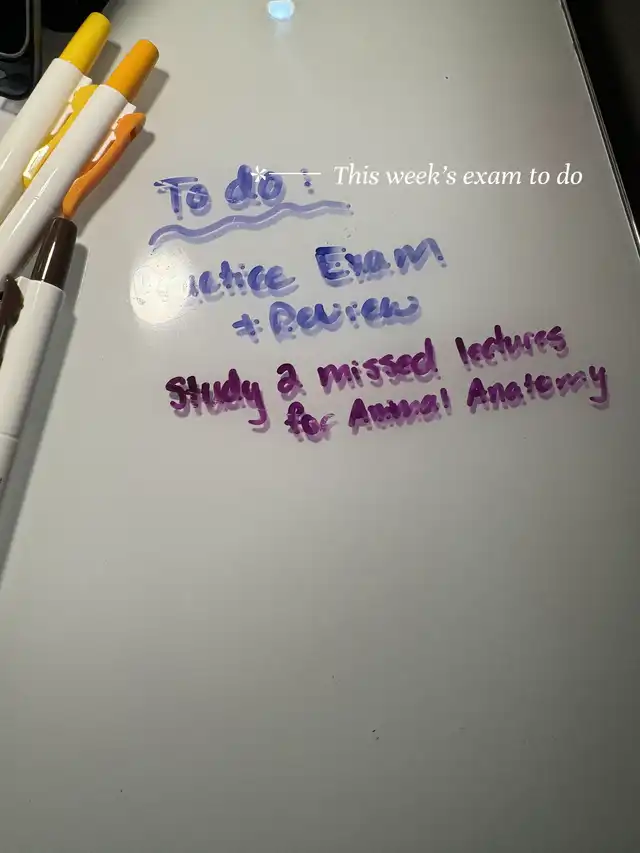 To do !
* This week's exam to do
Practice Exam
+ Review
Study 2 missed lectures
for Animal Anatomy